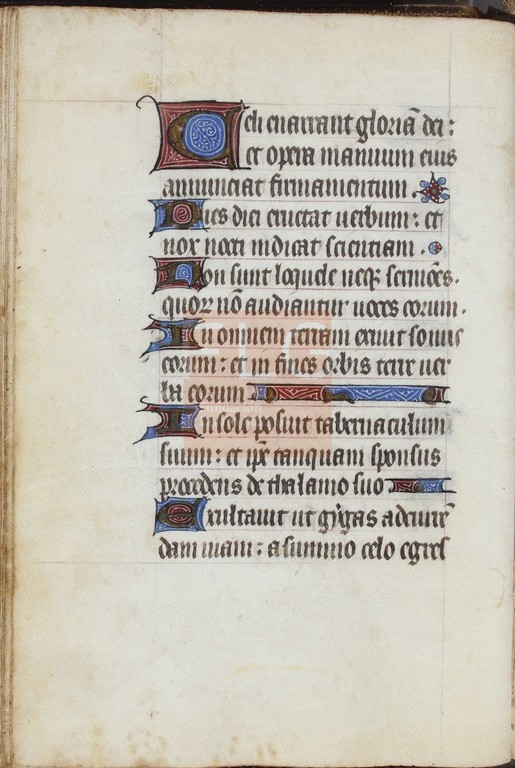 Celi enarrant gloriā dei:
et opera manuum eius
annunciat firmamentum.
Dies diei eructat uerbum: et
nox nocti indicat scientiam.
Non sunt loquele neqz sermões.
quoꝝ nō audiantur uoces eorum.
In omnem terram exiuit sonus
eorum: et in fines orbis terre uer
ba eorum
In sole posuit tabernaculum
suum: et ip̄e tanquam sponsus
procedens de thalamo suo
Exultauit ut gygas ad currē
dam uiam: a summo celo egres
FLG
fundación